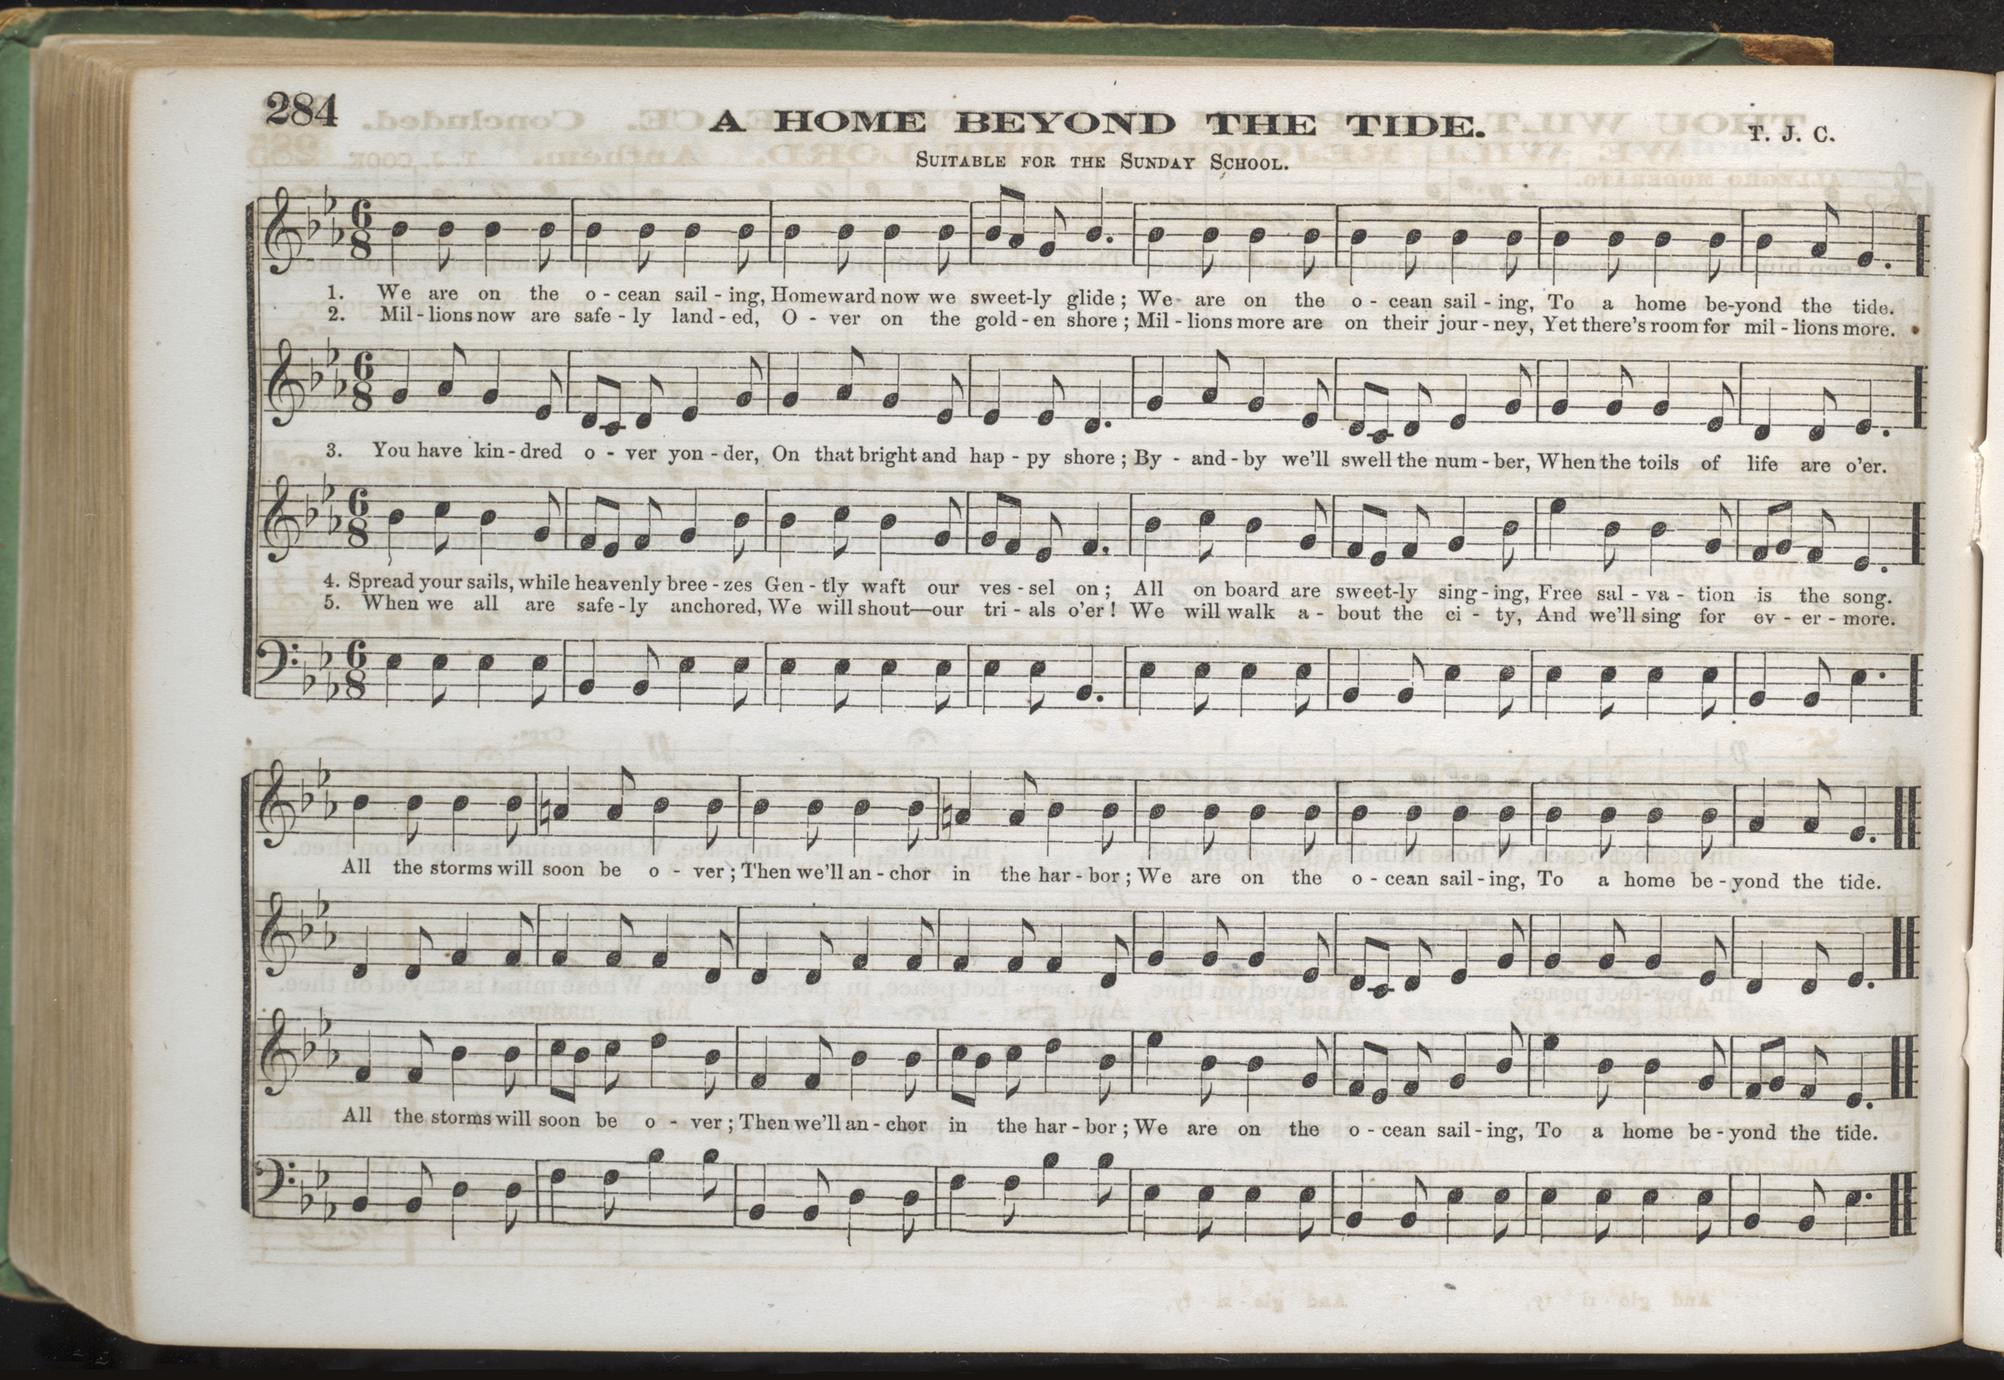 284
A HOME BEYOND THE TIDE.
T. J. C.
SUITABLE FOR THE SUNDAY SCHOOL.
6 8
1. We are on the o - cean sail - ing, Homeward now we sweet-ly glide ; We are on the o - cean sail - ing, To a home be-yond the tide.
2. Mil - lions now are safe - ly land - ed, O - ver on the gold - en shore ; Mil - lions more are on their jour - ney, Yet there's room for mil - lions more.
6 8
3. You have kin - dred o - ver yon - der, On that bright and hap - py shore ; By - and - by we'll swell the num - ber, When the toils of life are o'er.
6 8
4. Spread your sails, while heavenly bree - zes Gen - tly waft our ves - sel on ; All on board are sweet-ly sing - ing, Free sal - va - tion is the song.
5. When we all are safe - ly anchored, We will shout—our tri - als o'er ! We will walk a - bout the ci - ty, And we'll sing for ev - er - more.
6 8
All the storms will soon be o - ver ; Then we'll an - chor in the har - bor ; We are on the o - cean sail - ing, To a home be - yond the tide.
All the storms will soon be o - ver ; Then we'll an - chor in the har - bor ; We are on the o - cean sail - ing, To a home be - yond the tide.